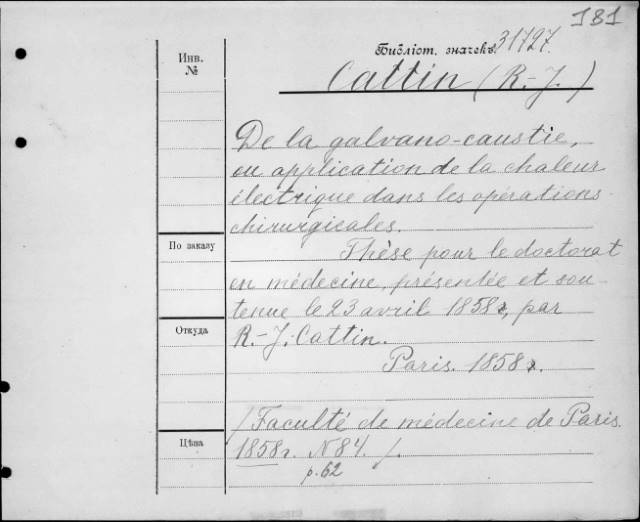 181
Инв.
№
Библіот. значекъ. 31727.
Cattin (R.-J.)
De la galvano-caustie,
ou application de la chaleur
électrique dans les opérations
chirurgicales.
По заказу
Thèse pour le doctorat
en médecine, présentée et sou-
tenue le 23 avril 1858г, par
Откуда
R.-J. Cattin.
Paris. 1858г.
/Faculté de médecine de Paris.
Цѣна
1858г. N84. /.
p. 62